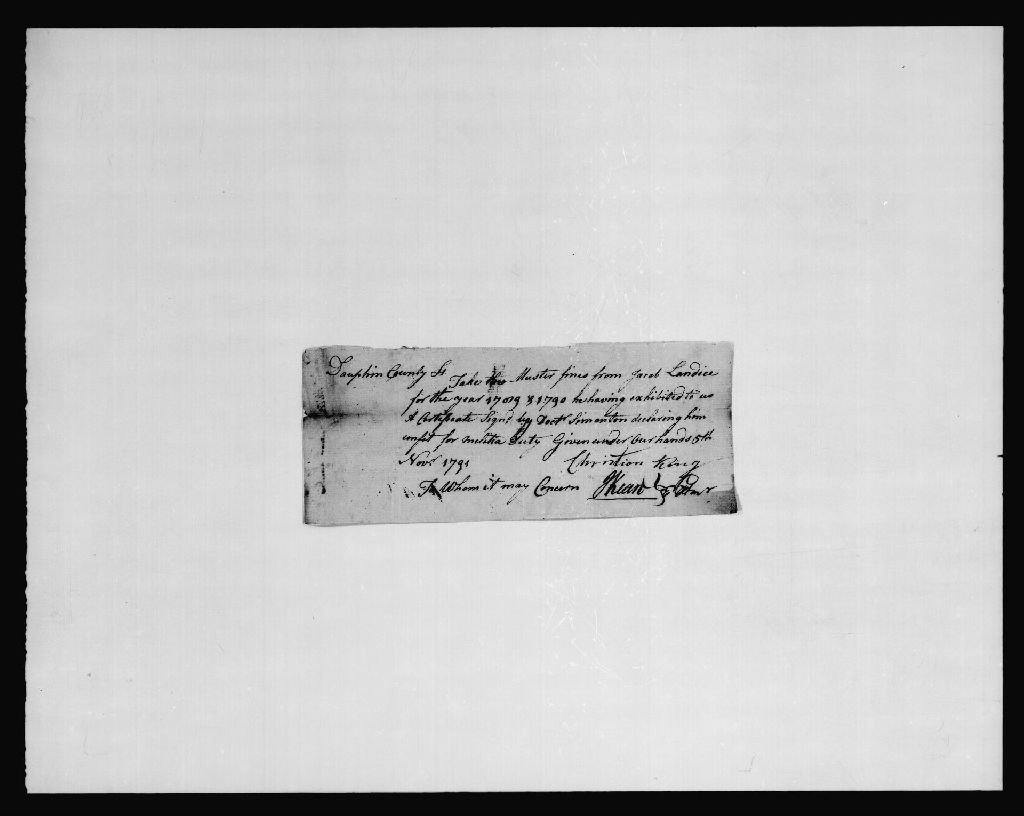 Dauphin County Ss
Take the Muster fines from Jacob Landice
for the year 1789 & 1790 he having exhibited to us
A Certificate Signd by Doctr Simonton declaring him
unfit for melitia Duty Given under our hands 5th
Novr 1791 Christian King
To Whom it may Concern J Kean